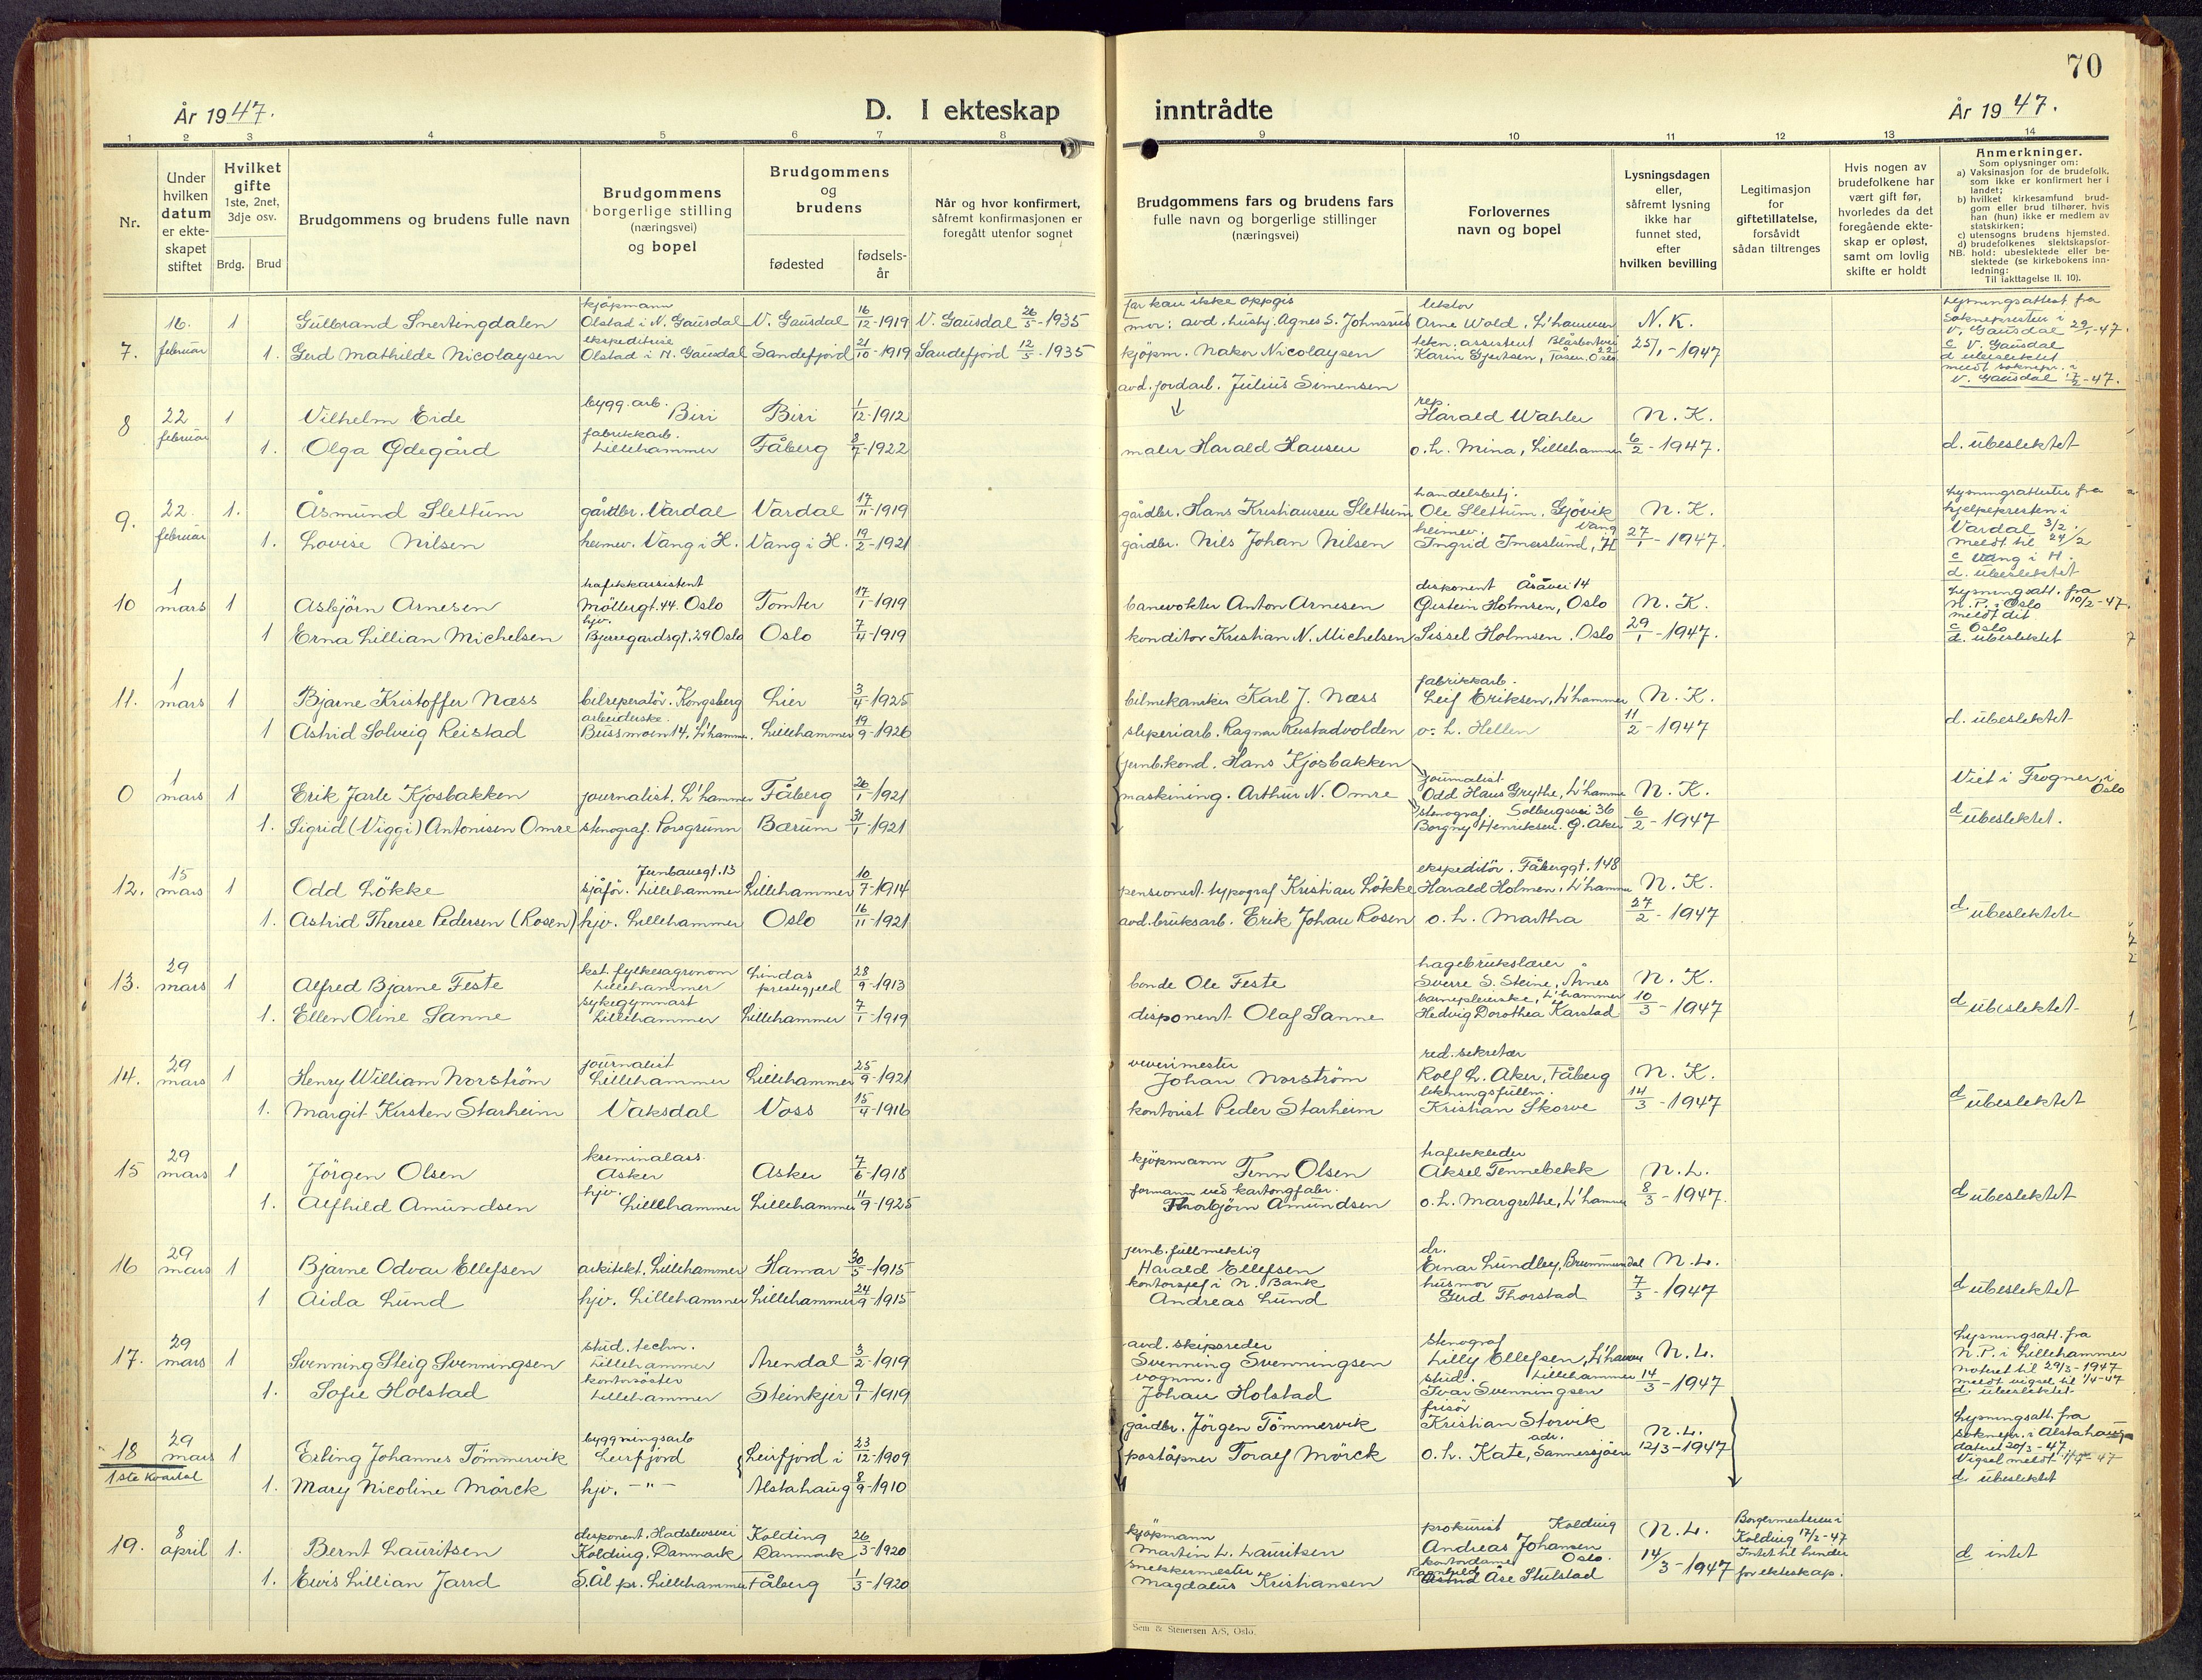 70
År 1947.
D. I ekteskap inntrådte
År 1947.
1 2 3 4 5 6 7 8 9 10 11 12 13 14
Nr.
Under hvilken datum er ekte-skapet stiftet
Hvilket gifte 1ste, 2net, 3dje osv.
Brdg. Brud
Brudgommens og brudens fulle navn
Brudgommens borgerlige stilling (næringsvei) og bopel
Brudgommens og brudens
fødested
fødsels-år
Når og hvor konfirmert, såfremt konfirmasjonen er foregått utenfor sognet
Brudgommens fars og brudens fars fulle navn og borgerlige stillinger (næringsvei)
Forlovernes navn og bopel
Lysningsdagen eller, såfremt lysning ikke har funnet sted, efter hvilken bevilling
Legitimasjon for giftetillatelse, forsåvidt sådan tiltrenges
Hvis nogen av brudefolkene har vært gift før, hvorledes da det foregående ekte-skap er opløst, samt om lovlig skifte er holdt
Anmerkninger.
Som oplysninger om:
a) Vaksinasjon for de brudefolk, som ikke er konfirmert her i landet;
b) hvilket kirkesamfund brud-gom eller brud tilhører, hvis han (hun) ikke er medlem av statskirken;
c) utensogns brudens hjemsted.
d) brudefolkenes slektskapsfor-hold: ubeslektede eller be-slektede (se kirkebokens inn-ledning:
NB.
Til iakttagelse II. 10).
7. 16. februar 1 Gulbrand Snertingdalen kjøpmann Olstad i N. Gausdal V. Gausdal 16/12-1919 V. Gausdal 26/5-1935 far kan ikke oppgis mor: avd. hustj. Agnes S. Johnsrud lektor Arne Wold, L'hammer N. K.
1. Gerd Mathilde Nicolaysen ekspeditrise Olstad i N. Gausdal Sandefjord 21/10-1919 Sandefjord 12/5-1935 kjøpm. Nakor Nicolaysen tekn. assistent Karin Gjertsen, Tåsen, Oslo 25/1-1947
Lysningsattest fra soknepresten i V. Gausdal 29/1-47. c V. Gausdal d ubeslektet meldt soknepr. i V. Gausdal 17/2-47.
8 22 februar 1 Vilhelm Eide bygg. arb. Biri Biri 1/12-1912 avd. jordarb. Julius Simensen rep. Harald Wahler N. K.
1. Olga Ødegård fabrikkarb. Lillehammer Fåberg 8/7-1922 maler Harald Hansen o. h. Mina, Lillehammer 6/2-1947. d. ubeslektet
9. 22. februar 1. Åsmund Slettum gårdbr. Vardal Vardal 17/11-1919 gårdbr. Hans Kristiansen Slettum handelsbetj. Ole Slettum, Gjövik N. K.
1. Lovise Nilsen heimev. Vang i H. Vang i H. 19/2-1921 gårdbr. Nils Johan Nilsen heimev. Vang Ingrid Imerslund, H 27/1-1947.
Lysningsattester fra hjelpepresten i Vardal 3/2. meldt til 24/2 c Vang i H. d. ubeslektet
10 1 mars 1 Asbjörn Arnesen trafikkassistent Möllergt. 44. Oslo Tomter 17/1-1919 banevokter Anton Arnesen disponent Åsåvei 14 Øistein Holmsen, Oslo N. K.
1 Erna Lillian Michelsen hjv. Bjerregårdsgt. 29 Oslo Oslo 7/4-1919 konditor Kristian N. Michelsen Sissel Holmsen. Oslo 29/1-1947.
Lysningsatt. fra N. P. i Oslo 10/2-47. meldt dit c Oslo d. ubeslektet
11. 1 mars 1 Bjarne Kristoffer Næss bilreperatör. Kongsberg Lier 3/4-1925 bilmekaniker Karl J. Næss fabrikkarb. Leif Eriksen, L'hammer N. K.
1 Astrid Solveig Reistad arbeiderske. Bussmoen 14, L'hammer. Lillehammer 19/9-1926 sliperiarb. Ragnar Rustadvolden o. h. Hellen 11/2-1947 d. ubeslektet
0 1 mars 1 Erik Jarle Kjosbakken journalist, L'hammer Fåberg 26/1-1921 jernb.kond. Hans Kjosbakken journalist. Odd Hans Grythe, L'hamme N. K. Viet i Frogner i Oslo
1. Sigrid (Viggi) Antonisen Omre stenograf. Porsgrunn Bærum 31/1-1921 maskining. Arthur N. Omre stenograf. Solbergsvei 36 Borgny Henriksen. Ø. Aker 6/2-1947 d ubeslektet.
12. 15 mars 1 Odd Lökke Jernbanegt. 13 sjåför. Lillehammer Lillehammer 10/7-1914 pensionert typograf Kristian Lökke ekspeditör. Fåberggt. 148 Harald Holmen, L'hamme N. K.
1. Astrid Therese Pedersen (Rosen) hjv. Lillehammer Oslo 16/11-1921 avd. bruksarb. Erik Johan Rosen o. h. Martha 27/2-1947 d ubeslektete
13. 29 mars 1 Alfred Bjarne Feste kst. fylkesagronom Lillehammer Lindås prestegjeld 28/9-1913 bonde Ole Feste hagebrukslærer Sverre S. Steine, Årnes N. K.
1. Ellen Oline Sanne sykegymnast Lillehammer Lillehammer 7/1-1919 disponent Olaf Sanne barnepleierske, L'hammer Hedvig Dorothea Karstad 10/3-1947 d ubeslektet
14. 29 mars 1 Henry William Norström journalist Lillehammer Lillehammer 25/9-1921 vevermester Johan Norström red. sekretær Rolf L. Aker, Fåberg N. K.
1. Margit Kirsten Starheim Vaksdal Voss 15/4-1916 kontorist Peder Starheim likningsfullm. Kristian Skorve 14/3-1947 d ubeslektet
15 29 mars 1 Jörgen Olsen kriminalass. Asker Asker 7/6-1918 kjöpmann Finn Olsen trafikkleder Aksel Tennebekk N. L.
1. Alfhild Amundsen hjv. Lillehammer Lillehammer 11/9-1925 formann ved kartongfabr. Thorbjörn Amundsen o. h. Margrethe, L'hammer 8/3-1947. d ubeslektet
16 29 mars 1 Bjarne Odvar Ellefsen arkitekt. Lillehammer Hamar 30/5-1915 jernb. fullmektig Harald Ellefsen dr. Einar Lundley, Brummundal N. L.
1 Aida Lund hjv. Lillehammer Lillehammer 24/9-1915 kontorsjef i N. Bank Andreas Lund husmor Gerd Thorstad 7/3-1947 d ubeslektet
17. 29 mars 1 Svenning Steig Svenningsen stud. techn. Lillehammer Arendal 3/2-1919 avd. skipsreder Svenning Svenningsen stenograf Lilly Ellefsen, L'hamm N. L.
1. Sofie Holstad kontorsöster Lillehammer Steinkjer 9/1-1919 vognm. Johan Holstad stud. Lillehammer Ivar Svenningsen 14/3-1947
Lysningsatt. fra N. P. i Lillehammer noteret til 29/3-1947 meldt vigsel til 1/4-47 d. ubeslektet
18 29 mars 1 Erling Johannes Tömmervik byggningsarb Leirfjord Leirfjord i 23/12-1909 gårdbr. Jörgen Tömmervik frisör Kristian Storvik N. L.
1ste Kvartal
1. Mary Nicoline Mörck hjv. -"- Alstahaug 8/9-1910 poståpner Toralf Mörck o. h. Kate, adr. Sannessjöen 12/3-1947
Lysningsatt. fra soknepr. i Alstahaug dateret 20/3-47. Vigsel meldt 1/4-47 d. ubeslektet
19. 8 april 1. Bernt Lauritsen disponent. Hadslevsvei Kolding. Danmark Kolding Danmark 26/3-1920 kjöpmann Martin L. Lauritsen prokurist Kolding Andreas Johansen N. L. Borgermesteren i Kolding 17/2-47 Intet til hinder for ekteskap. d intet
1. Ewis Lillian Jarrd S. Ål pr. Lillehammer Fåberg 1/3-1920 snekkermester Magdalus Kristiansen kontordame Oslo. Ragnhild Åse Stulstad 14/3-1947
Sem & Stenersen A/S, Oslo.